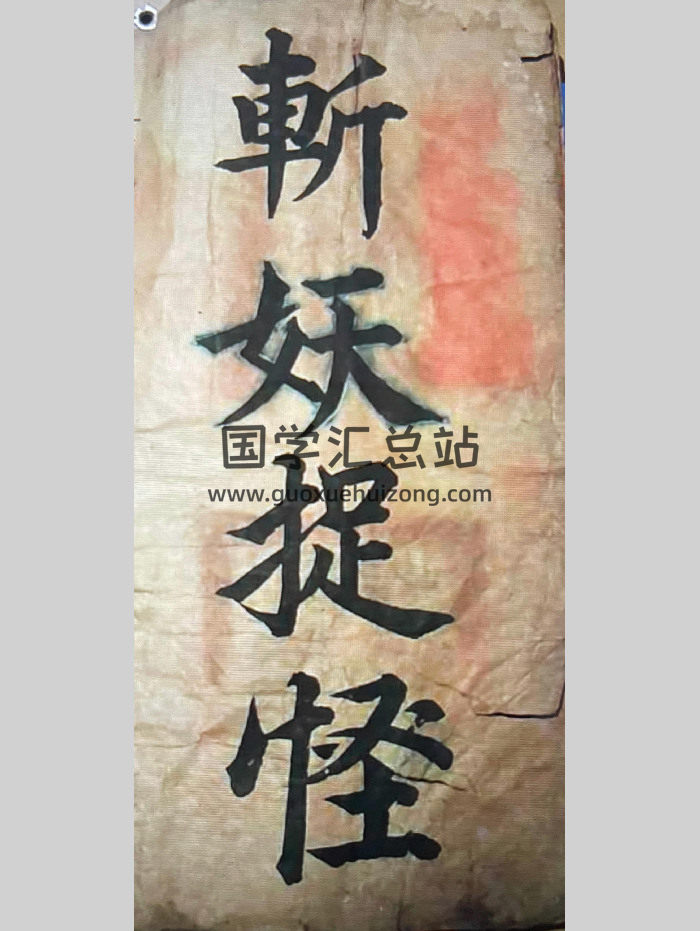 斬妖捉怪
国学汇总站
www.guoxuehuizong.com